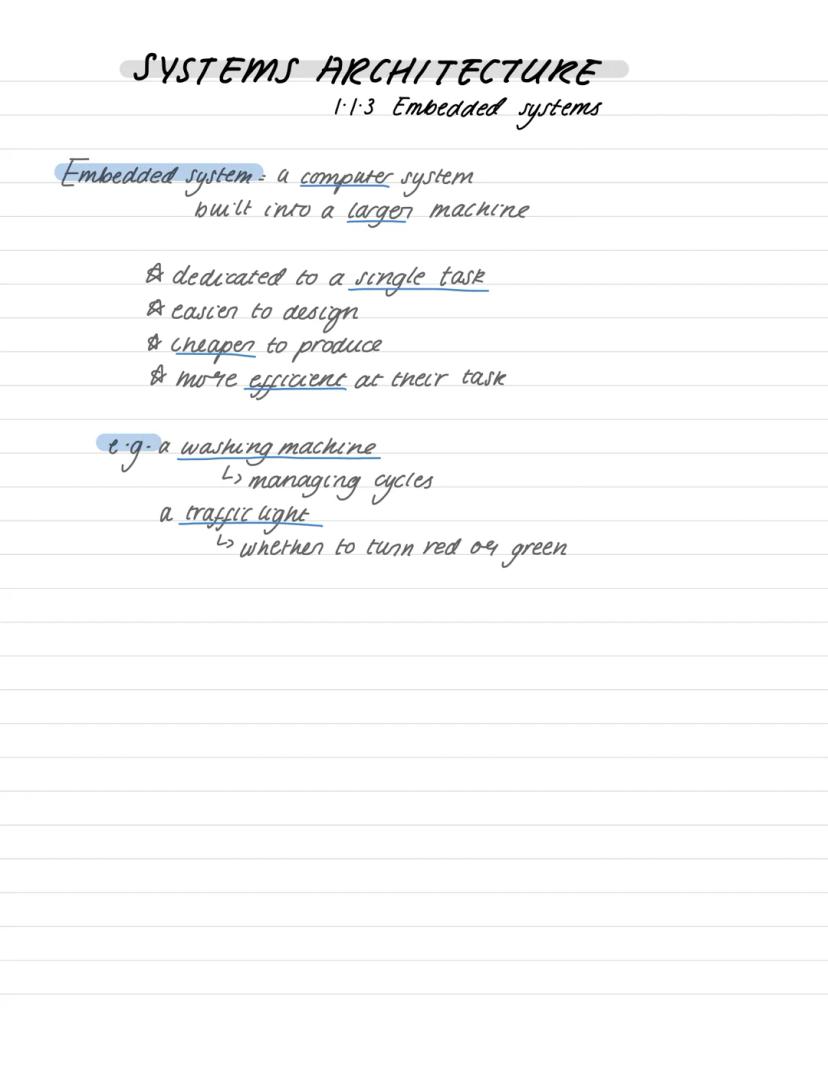 SYSTEMS ARCHITECTURE
1.1.3 Embedded systems
Embedded system = a computer system
built into a larger machine
☆ dedicated to a single task
☆ easier to design
☆ cheaper to produce
☆ more efficient at their task
e.g. a washing machine
↳ managing cycles
a traffic light
↳ whether to turn red or green